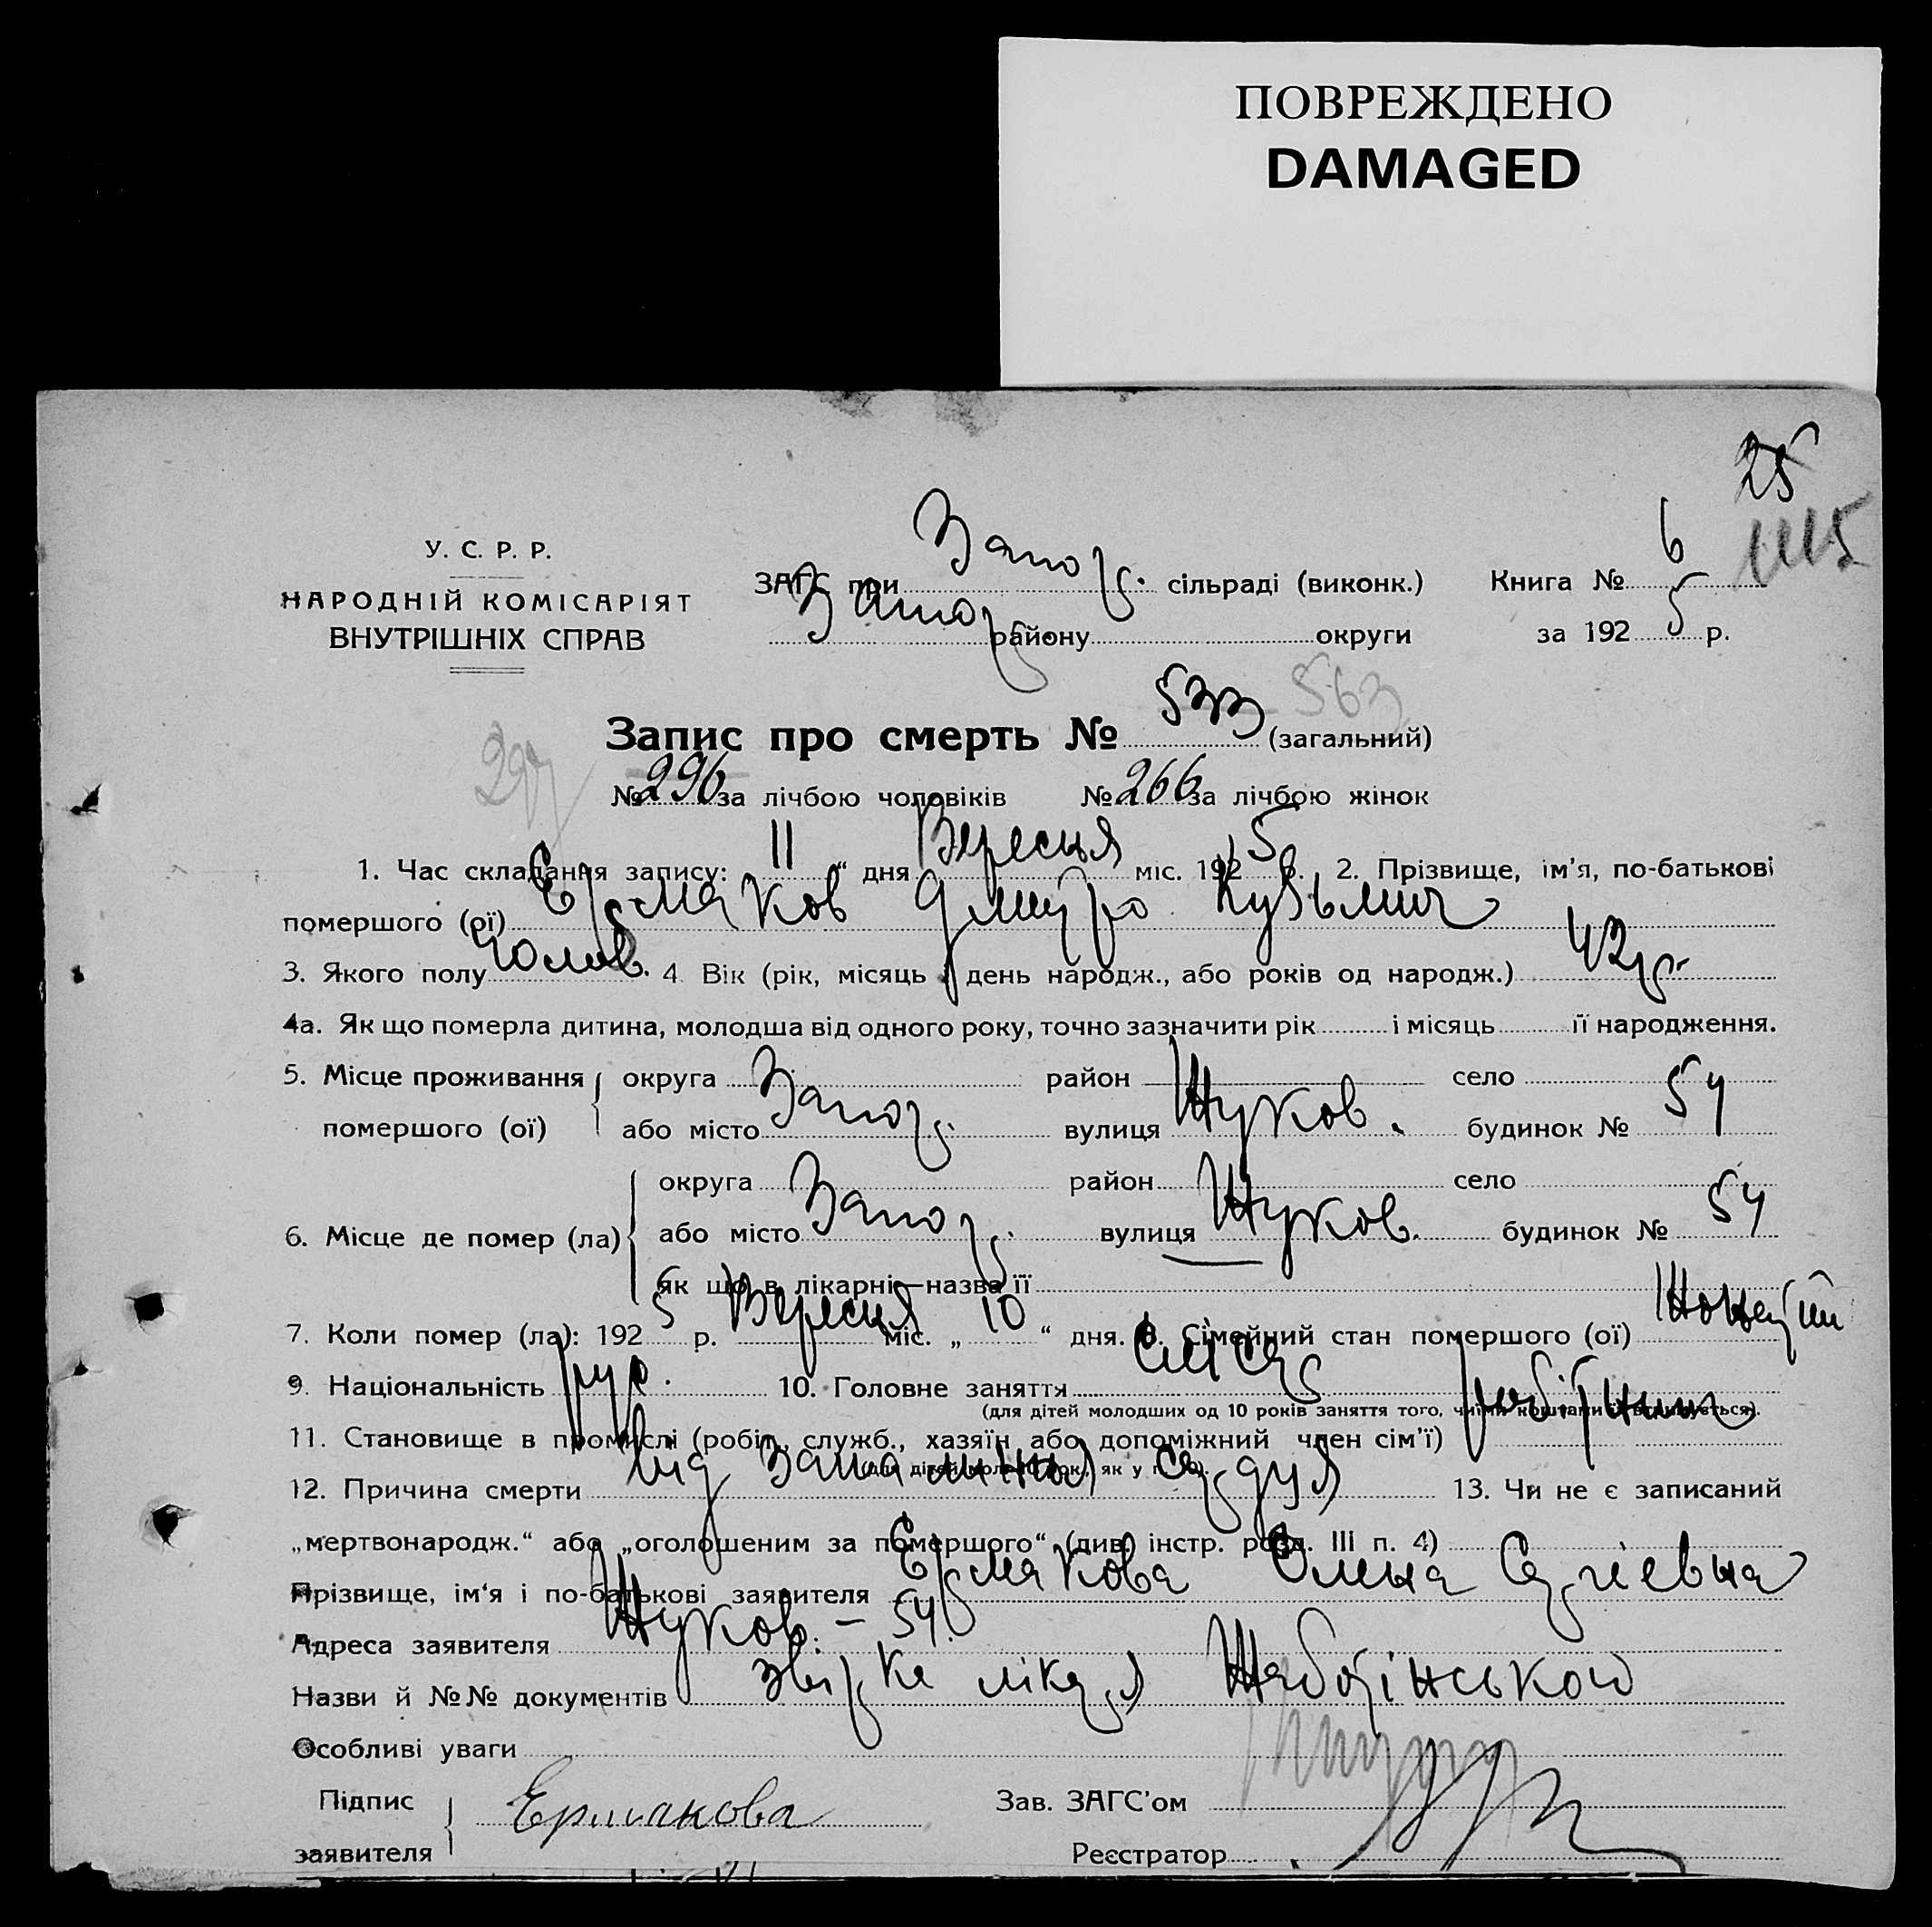 ПОВРЕЖДЕНО
DAMAGED
25
У. С. Р. Р.
НАРОДНІЙ КОМІСАРІЯТ
ВНУТРІШНІХ СПРАВ
ЗАГС при Запор. сільраді (виконк.) Книга № 6
Запор. району округи за 1925 р.
Запис про смерть № 533 563 (загальний)
297 № 296 за лічбою чоловіків № 266 за лічбою жінок
1. Час складання запису: 11 “ дня Вересня міс. 1925 р. 2. Прізвище, ім'я, по-батькові
помершого (ої) Ермаков Дмитро Кузьмич
3. Якого полу Чолов. 4. Вік (рік, місяць і день народж., або років од народж.) 42 р.
4а. Як що померла дитина, молодша від одного року, точно зазначити рік і місяць її народження.
5. Місце проживання округа район село
помершого (ої) або місто Запор. вулиця Жуков. будинок № 54
округа район село
6. Місце де помер (ла) або місто Запор. вулиця Жуков. будинок № 54
як що в лікарні—назва її
7. Коли помер (ла): 1925 р. Вересня міс. „ 10 “ дня. 8. Сімейний стан помершого (ої) Жонатий
9. Національність рус. 10. Головне заняття слюсар
(для дітей молодших од 10 років заняття того, чиїми коштами їх втримується).
11. Становище в промислі (робітн., служб., хазяїн або допоміжний член сім'ї) робітник
(для дітей мол. 10 рок., як у п. 10).
12. Причина смерти Від запалення серця 13. Чи не є записаний
„мертвонародж.“ або „оголошеним за помершого“ (див. інстр. розд. III п. 4)
Прізвище, ім'я і по-батькові заявителя Ермакова Олена Сергіевна
Адреса заявителя Жуков. – 54.
Назви й №№ документів лікаря
Особливі уваги
Підпис Ермакова Зав. ЗАГС'ом
заявителя Реєстратор